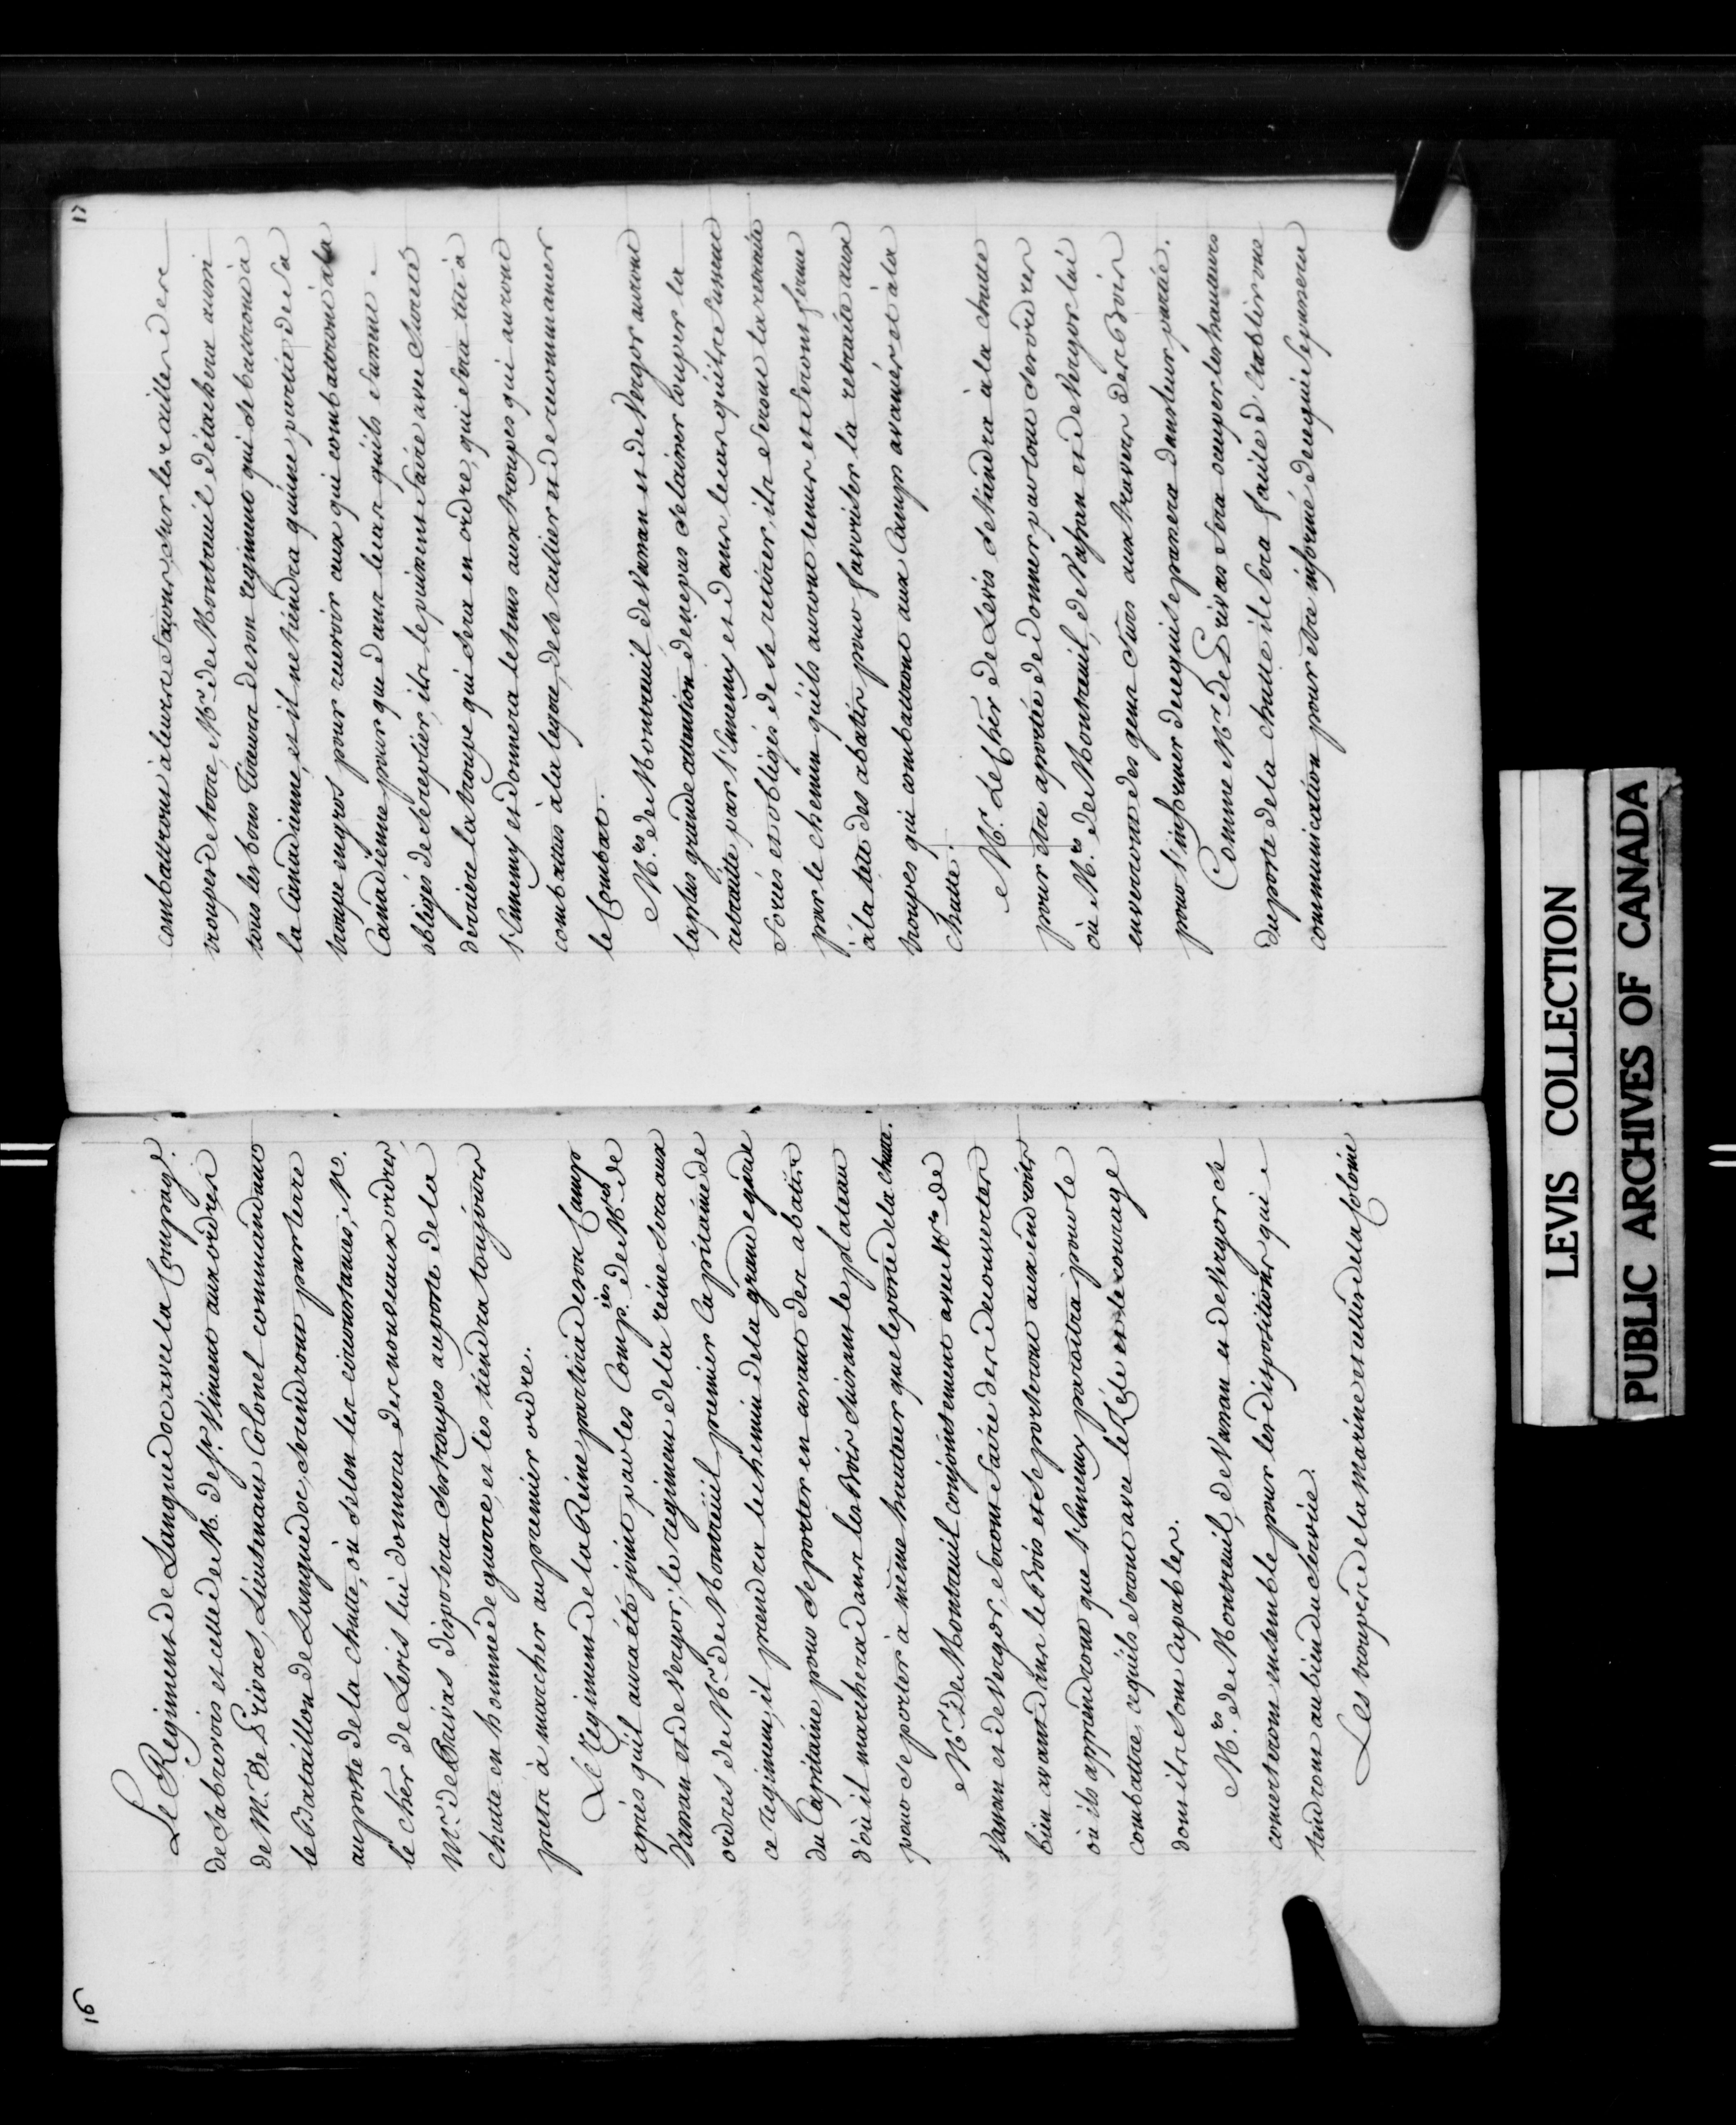 16
Le Regiment de Languedoc avec la Compag.e
de Sabrevois et celle de M. de St. Vincent aux ordres
de Mr. de Privas, Lieutenant Colonel commandant
le Bataillon de Languedoc, se rendront par terre
au poste de la chutte, où selon les circonstances, M.
le Cher de Levis lui donnera des nouveaux ordres,
Mr. de Privas disposera ses troupes au poste de la
chutte en homme de guerre, et les tiendra toujours
prets à marcher au premier ordre.
Le regiment de la Reine partira de son Camp
après qu'il aura été joint par les Comp.ies de Mrs de
Vassan et de Vergor, le regiment de la reine sera aux
ordres de Mr. de Montreüil premier Capitaine de
ce regiment, il prendra le chemin de la grande garde
du Capitaine pour se porter en avant des abatis
d'où il marchera dans les Bois suivant le plateau
pour se porter à même hauteur que le poste de la chutte.
Mr. de Montreuil conjointement avec Mrs de
Vassan et de Vergor, seront faire des decouvertes
bien avant dans le Bois et se porteront aux endroits
où ils apprendront que l'Ennemy paroitra pour le
combattre, ce qu'ils feront avec le Zéle et le courage
dont ils sont capables.
M.rs de Montreuil, de Vassan et de Vergor se
concerteront ensemble pour les dispositions qui
tendront au bien du service.
Les troupes de la Marine et celles de la Colonie
17
combattront à leurs façons, sur les ailles des
troupes de terre, Mr de Montreuil détachera aussi
tous les bons Tireurs de son regiment qui se battront à
la Canadienne, et il ne tiendra qu'une partie de sa
troupe en gros pour recevoir ceux qui combattront à la
Canadienne pour que dans le cas qu'ils fussent
obligés de se replier, ils le puissent faire avec sureté
derriere la troupe qui sera en ordre, qui fera tête à
l'Ennemy et donnera le tems aux troupes qui auront
combattus à la legere, de se rallier et de recommancer
le Combat.
M.rs de Montreuil de Vassan et de Vergor auront
la plus grande attention de ne pas se laisser couper la
retraitte par l'Ennemy et dans le cas qu'ils fussent
forcés et obligés de se retirer, ils feront la retraite
par le chemin qu'ils auront tenus et seront ferme
à la tête des abatis pour favoriser la retraite aux
troupes qui combattront aux Camps avancés et à la
Chutte.
Mr. Le Cher de Levis se tiendra à la chutte
pour être à portée de donner par tout ses ordres
où M.rs de Montreuil, de Vassan et de Vergor lui
enverront des gens surs aux travers des Bois
pour l'informer de ce qui se passera dans leur partie.
Comme Mr. de Privas sera occuper les hauteurs
du poste de la chutte il sera facile d'etablir une
communication pour etre informé de ce qui se passera
LEVIS COLLECTION
PUBLIC ARCHIVES OF CANADA